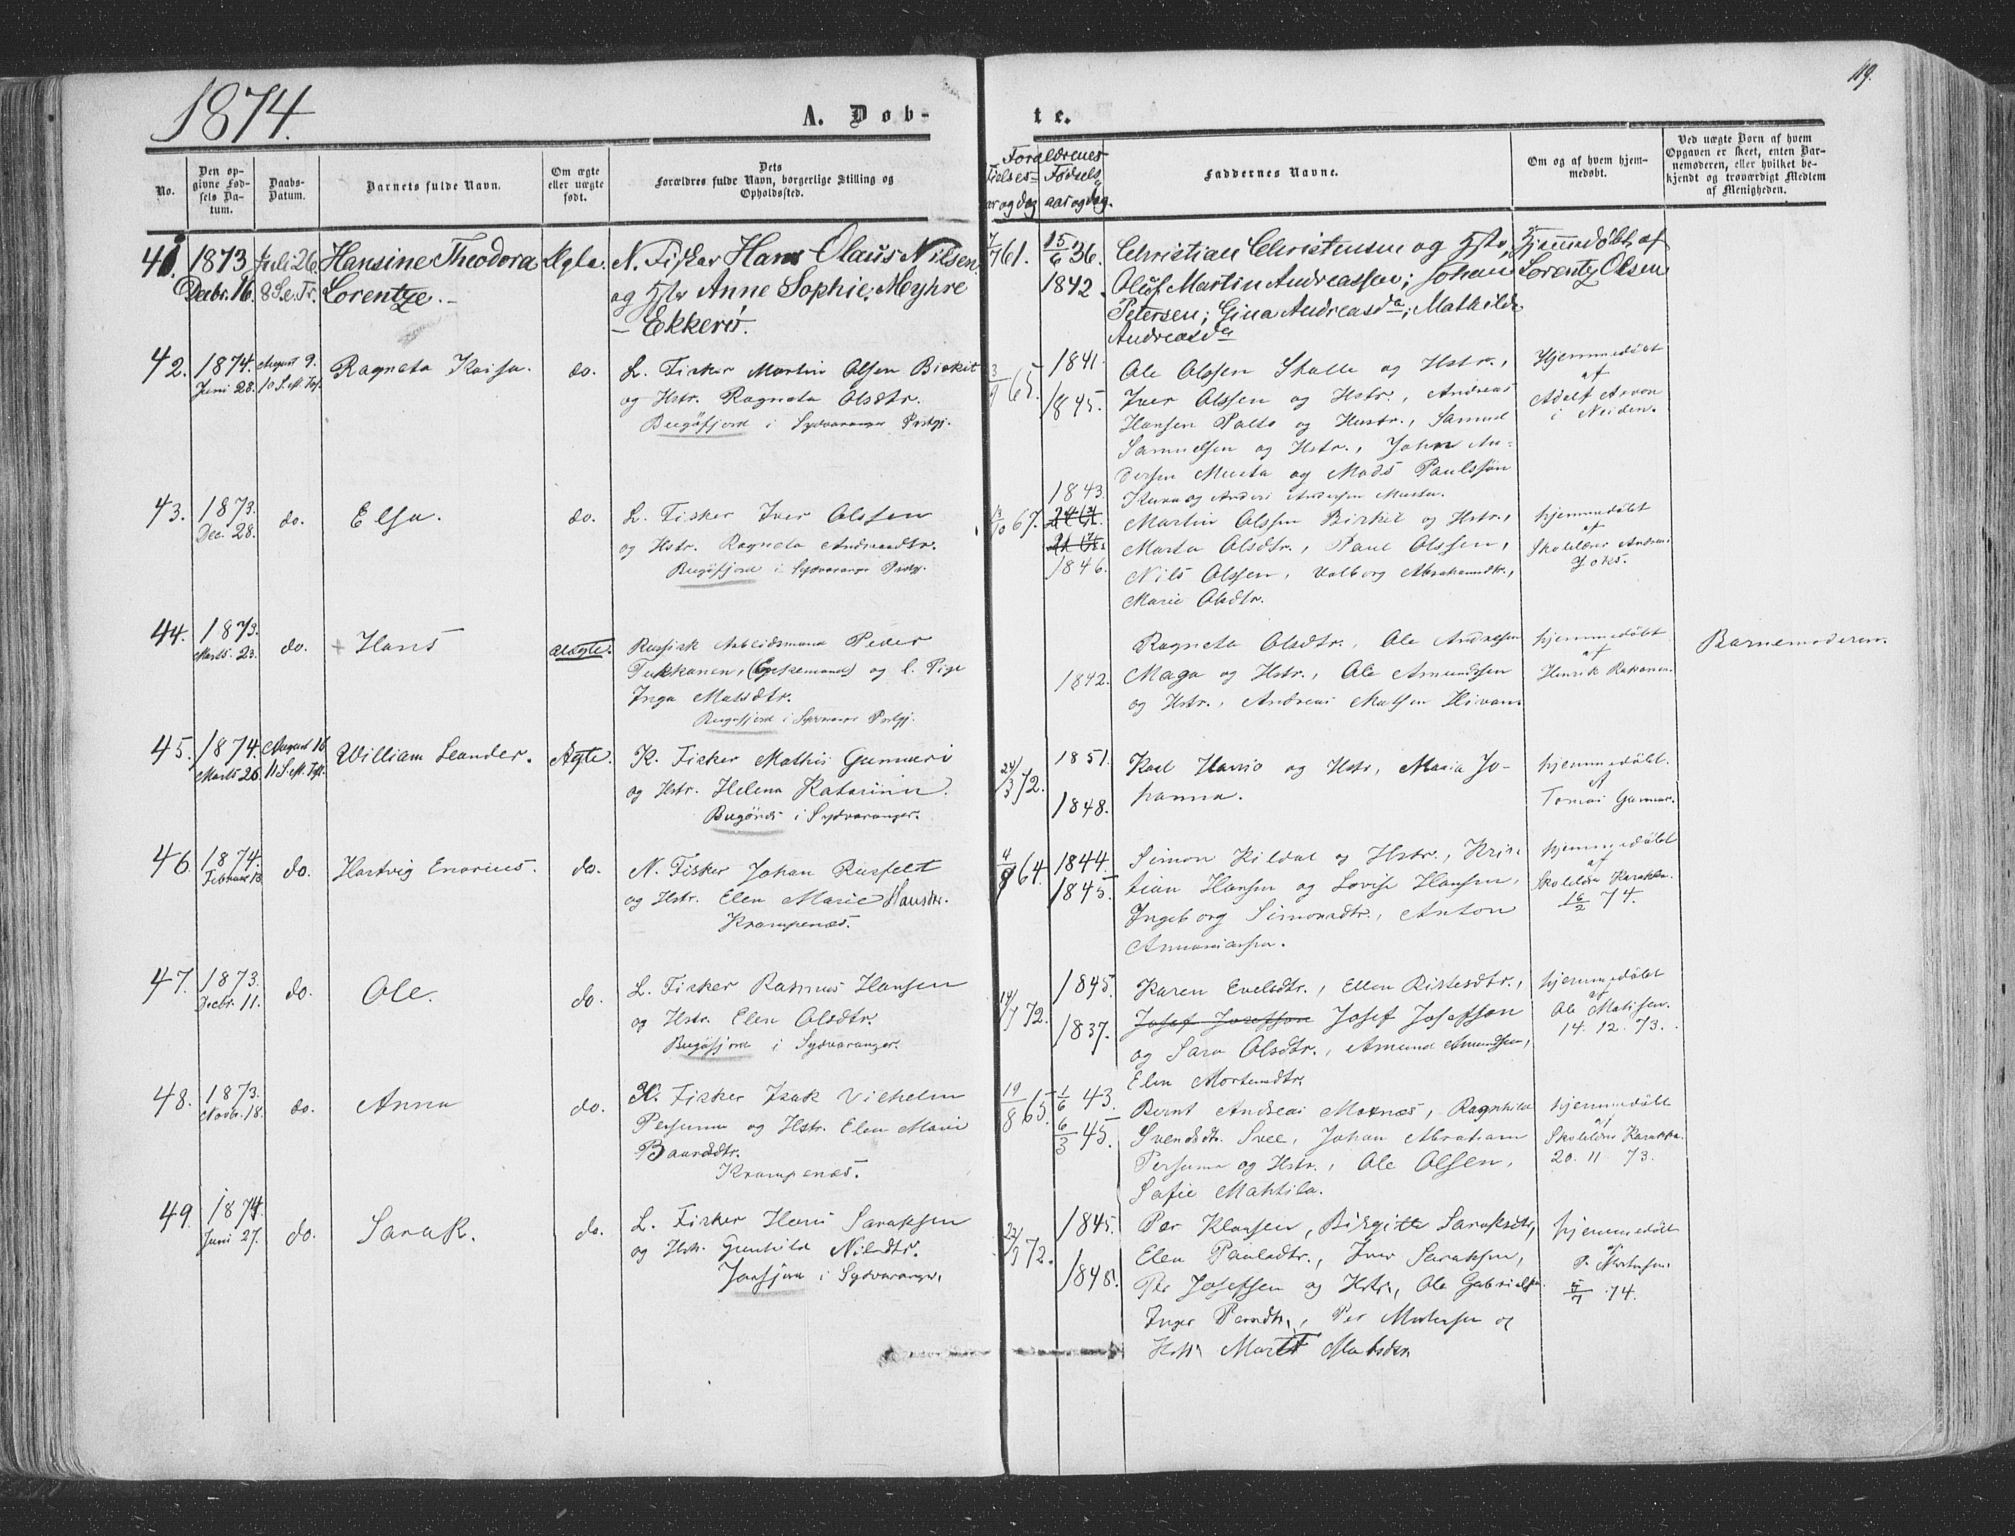 1874.
119.
A. Døb-
te.
No.
Den op-
givne Fød-
sels Da-
tum.
Daabs-
Datum.
Barnets fulde Navn.
Om ægte
eller uægte
født.
Dets
Forældres fulde Navn, borgerlige Stilling og
Opholdssted.
Forældrenes
Fødsels
aar og dag.
aar og dag
Faddernes Navne.
Om og af hvem hjem-
medøbt.
Ved uægte Børn af hvem
Opgaven er skeet, enten Bar-
nemoderen, eller hvilket be-
kjendt og troværdigt Medlem
af Menigheden.
41.
1873
Decbr. 16.
Juli 26.
8 S. e. Tr.
Hansine Theodora
Lorentze.
Ægte.
N. Fisker Hans Olaus Nilsen
og Hstr Anne Sophie Meyhre
- Ekkerö.
7/ 61.
15/6 36.
1842.
Christian Christensen og Hstr,
Oluf Martin Andreassen; Johan
Petersen; Gina Andreasda; Mathilde
Andreasda
Hjemmedøbt af
Lorentz Olsen
42.
1874.
Juni 28.
August 9.
10 S. e. Tr.
Ragneta Kaisa.
do.
L. Fisker Martin Olsen Birkit
og Hstr. Ragneta Olsdtr.
Bugöfjord i Sydvaranger Prstgj.
65.
1841.
1845.
Ole Olssen Stalle og Hstr.,
Iver Olssen og Hstr., Andreas
Hansen Palto og Hustr., Samuel
Samuelsen og Hstr., Johan An-
dersen Musta og Mads Paulssön
og Anders Andersen Musta.
Hjemmedöbt
af
Adolf Arvon
i Neiden.
43.
1873.
Dec. 28.
do.
Elsa.
do.
L. Fisker Iver Olssen
og Hstr. Ragneta Andreasdtr.
Bugöfjord i Sydvaranger Prstgj.
67.
1843.
1846.
Martin Olssen Birkit og Hstr.,
Marta Olsdtr., Paul Olssen,
Nils Olssen, Valborg Abrahamsdtr.,
Marie Olsdtr.
hjemmedöbt
af
Skolelærer Andreas
44.
1873.
Marts 23.
do.
+ Hans
uægte.
Russisk Arbeidsmand Peder
Pukkanen, (Enkemand) og l. Pige
Inga Matsdtr.
Bugöfjord i Sydvaranger Prstgj.
1842.
Ragneta Olsdtr., Ole Andersen
Maga og Hstr., Ole Amundsen
og Hstr., Andreas Matsen
hjemmedöbt
af
Henrik
Barnemoderen.
45.
1874.
Marts 26.
August 16
11 S. e. Tr.
William Leander.
Ægte.
K. Fisker Mathis Gunnari
og Hstr. Helena Katarina.
Bugönes i Sydvaranger.
24/3 72.
1851.
1848.
Karl Hannio og Hstr., Maria Jo-
hanna.
hjemmedöbt
af
Tomas Gunnar.
46.
1874.
Februar 13.
do.
Hartvig Enorius.
do.
N. Fisker Johan Rusfelt
og Hstr. Elen Marie Hansdtr.
Krampenæs.
64.
1844.
1845.
Simon Kildal og Hstr., Kris-
tian Hansen og Lovise Hansen,
Ingeborg Simonsdtr., Anton
Annaniassen.
hjemmedöbt
af
Skolelærer Karakka.
16/2 74.
47.
1873.
Decbr. 11.
do.
Ole.
do.
L. Fisker Rasmus Hansen
og Hstr. Elen Olsdtr.
Bugöfjord i Sydvaranger.
14/7 72.
1845.
1837.
Karen Evelsdtr., Ellen Ristesdtr.,
Josef Josefson Josef Josefson
og Sara Olsdtr., Amund Amundsen,
Elen Mortensdtr.
hjemmedöbt
af
Ole Matisen.
14. 12. 73.
48.
1873.
Novbr. 18.
do.
Anna
do.
K. Fisker Isak Vilhelm
Persuma og Hstr. Elen Maria
Baardsdtr.
Krampenæs.
19/8 65
1/6 43.
6/3 45.
Bernt Andreas Moxnæs, Ragnhild
Svendsdtr. Svee, Johan Abraham
Persuma og Hstr., Ole Olsen,
Sofie Mahtila.
hjemmedöbt
af
Skolelærer Karakka.
20. 11 73.
49.
1874.
Juni 27.
do.
Sarak.
do.
L. Fisker Hans Saraksen
og Hstr. Gunhild Nilsdtr.
Jarfjord i Sydvaranger.
22/9 72.
1845.
1848.
Per Klausen, Birgitte Saraksdtr,
Elen Paulsdtr., Iver Saraksen,
Per Josefsen og Hstr., Ole Gabrielsen
Inger Persdtr., Per Mortensen og
Hstr. Marit Matsdtr.
hjemmedöbt
af
P. Mortensen
/7 74.